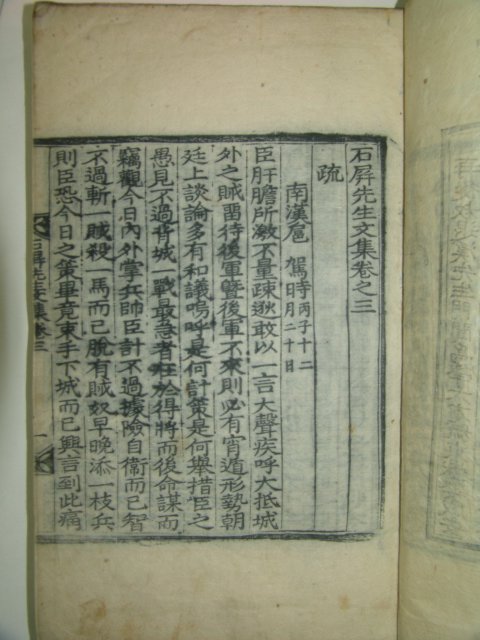 石屏先生文集卷之三
疏
南漢扈 駕時 丙子十二月二十日
臣肝膽所激不量疎逖敢以一言大聲疾呼大抵城
外之賊留待後軍曁後軍不來則必有宵遁形勢朝
廷上談論多有和議嗚呼是何計策是何擧措臣之
愚見不過背城一戰最急者在於得將而後命謀而
竊觀今日內外掌兵帥臣計不過據險自衛而已智
不過斬一賊殺一馬而已脫有賊奴早晩添一枝兵
則臣恐今日之策畢竟束手下城而已興言到此痛
石屏先生文集卷三 一